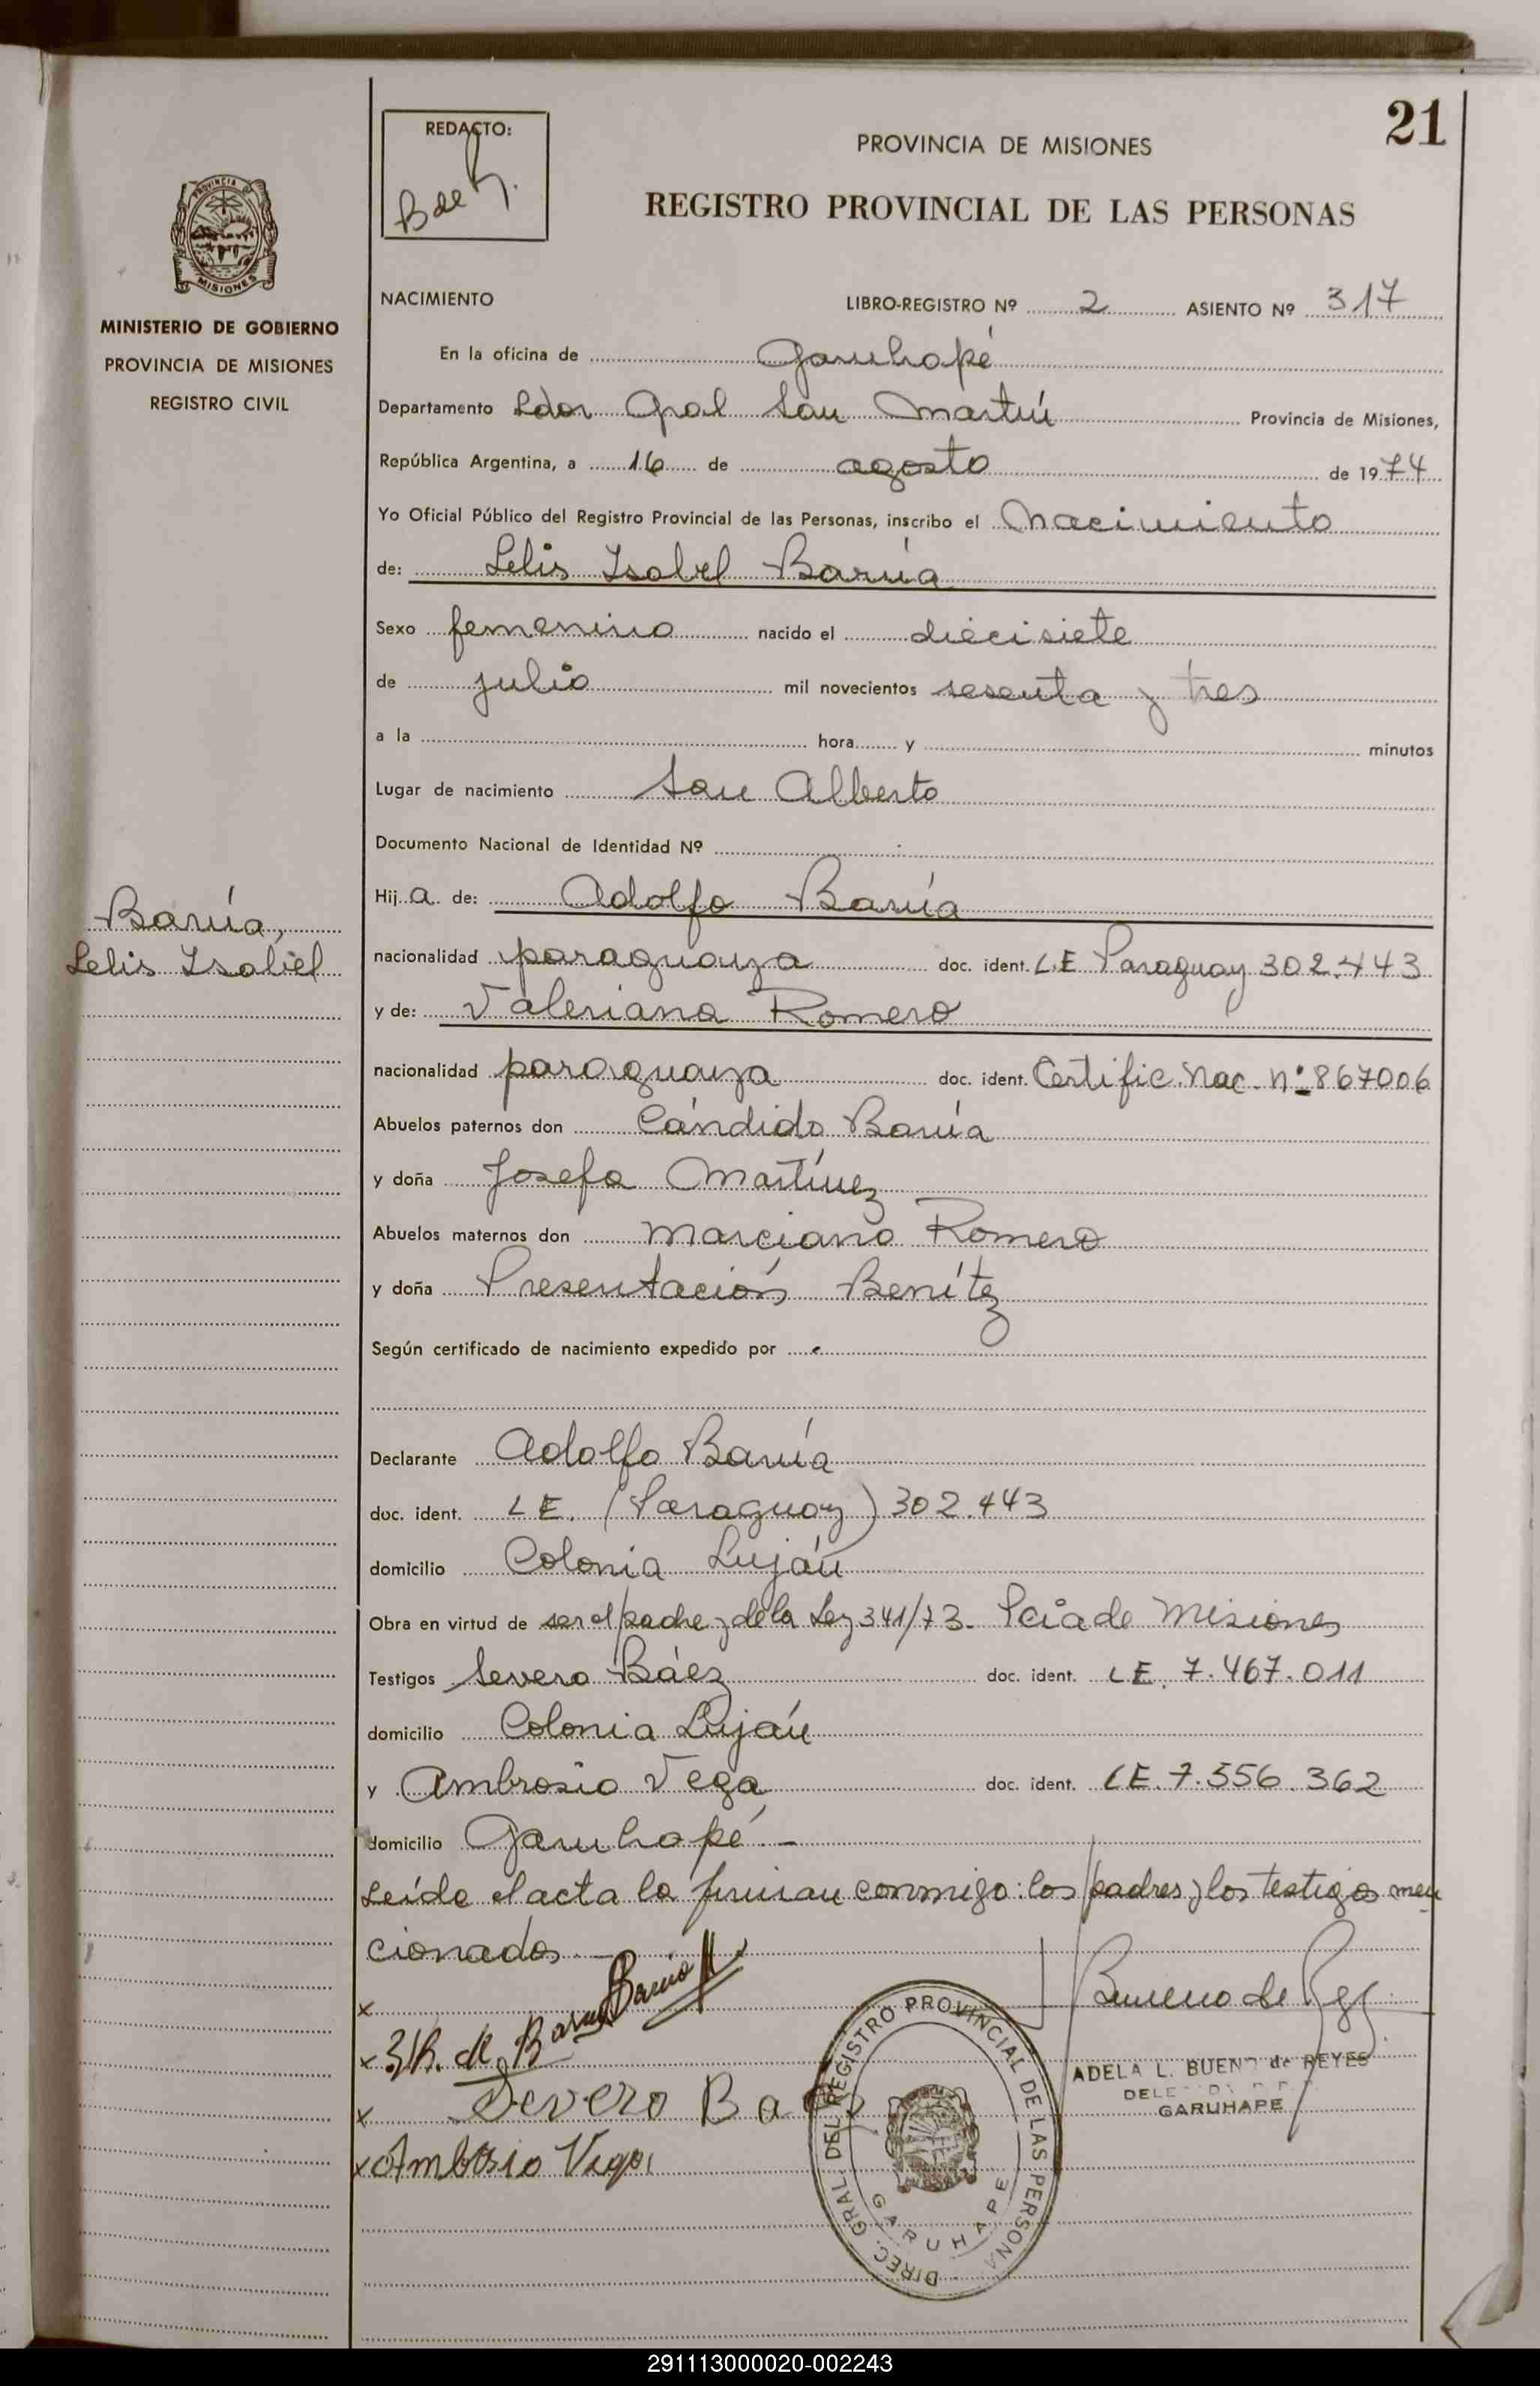 21
REDACTO:
B de R.
PROVINCIA DE MISIONES
REGISTRO PROVINCIAL DE LAS PERSONAS
PROVINCIA
MISIONES
MINISTERIO DE GOBIERNO
PROVINCIA DE MISIONES
REGISTRO CIVIL
NACIMIENTO LIBRO-REGISTRO Nº 2 ASIENTO Nº 317
En la oficina de Garuhapé
Departamento Ldor Gral San Martín Provincia de Misiones,
República Argentina, a 16 de agosto de 1974
Yo Oficial Público del Registro Provincial de las Personas, inscribo el Nacimiento
de: Lelis Isabel Barúa
Sexo femenino nacido el diecisiete
de julio mil novecientos sesenta y tres
a la hora y minutos
Lugar de nacimiento San Alberto
Documento Nacional de Identidad Nº
Hija de: Adolfo Barúa
Barúa,
Lelis Isabel
nacionalidad paraguaya doc. ident. L.E Paraguay 302.443
y de: Valeriana Romero
nacionalidad paraguaya doc. ident. Certific. Nac. Nº 867006
Abuelos paternos don Cándido Barúa
y doña Josefa Martínez
Abuelos maternos don Marciano Romero
y doña Presentación Benítez
Según certificado de nacimiento expedido por
Declarante Adolfo Barúa
doc. ident. L E. (Paraguay) 302.443
domicilio Colonia Luján
Obra en virtud de ser el padre y de la Ley 341/73. Pcia de Misiones
Testigos Severo Báez doc. ident. L E. 7.467.011
domicilio Colonia Luján
y Ambrosio Vega doc. ident. L E. 7.556.362
domicilio Garuhapé.-
Leída el acta la firman conmigo: los padres y los testigos men
cionados.-
x Barúa
x R. de Barúa
x Severo Baez
x Ambrosio Vega
Bueno de Reyes
ADELA L. BUENO de REYES
GARUHAPE
DIREC. GRAL. DEL REGISTRO PROVINCIAL DE LAS PERSONA
GARUHAPE
291113000020-002243